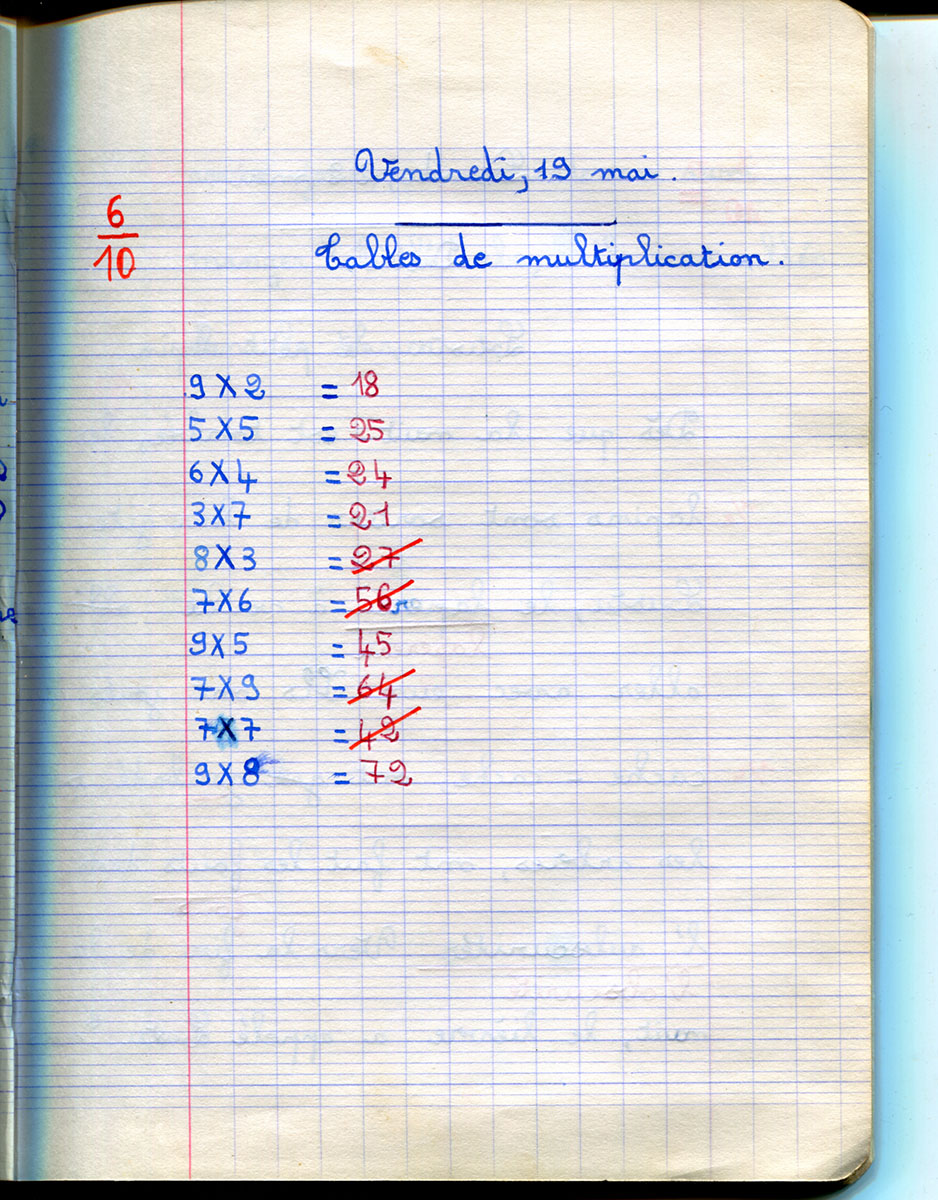 Vendredi, 19 mai.
6
10
Tables de multiplication.
9 X 2 = 18
5 X 5 = 25
6 X 4 = 24
3 X 7 = 21
8 X 3 = 27
7 X 6 = 56
9 X 5 = 45
7 X 9 = 64
7 X 7 = 42
9 X 8 = 72